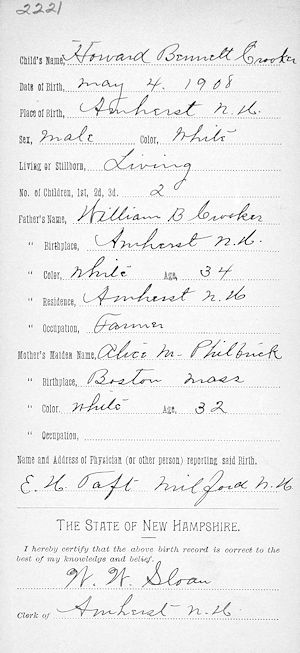 2221
Child's Name, Howard Bennett Crooker
Date of Birth, May 4, 1908
Place of Birth, Amherst N.H.
Sex, Male Color, White
Living or Stillborn, Living
No. of Children, 1st, 2d, 3d. 2
Father's Name, William B Crooker
" Birthplace, Amherst N.H.
" Color, White Age, 34
" Residence, Amherst N.H
" Occupation, Farmer
Mother's Maiden Name, Alice M. Philbrick
" Birthplace, Boston Mass
" Color, White Age, 32
" Occupation,
Name and Address of Physician (or other person) reporting said Birth.
E. H. Taft Milford N.H
THE STATE OF NEW HAMPSHIRE.
I hereby certify that the above birth record is correct to the
best of my knowledge and belief.
W. W. Sloan
Clerk of Amherst N.H.